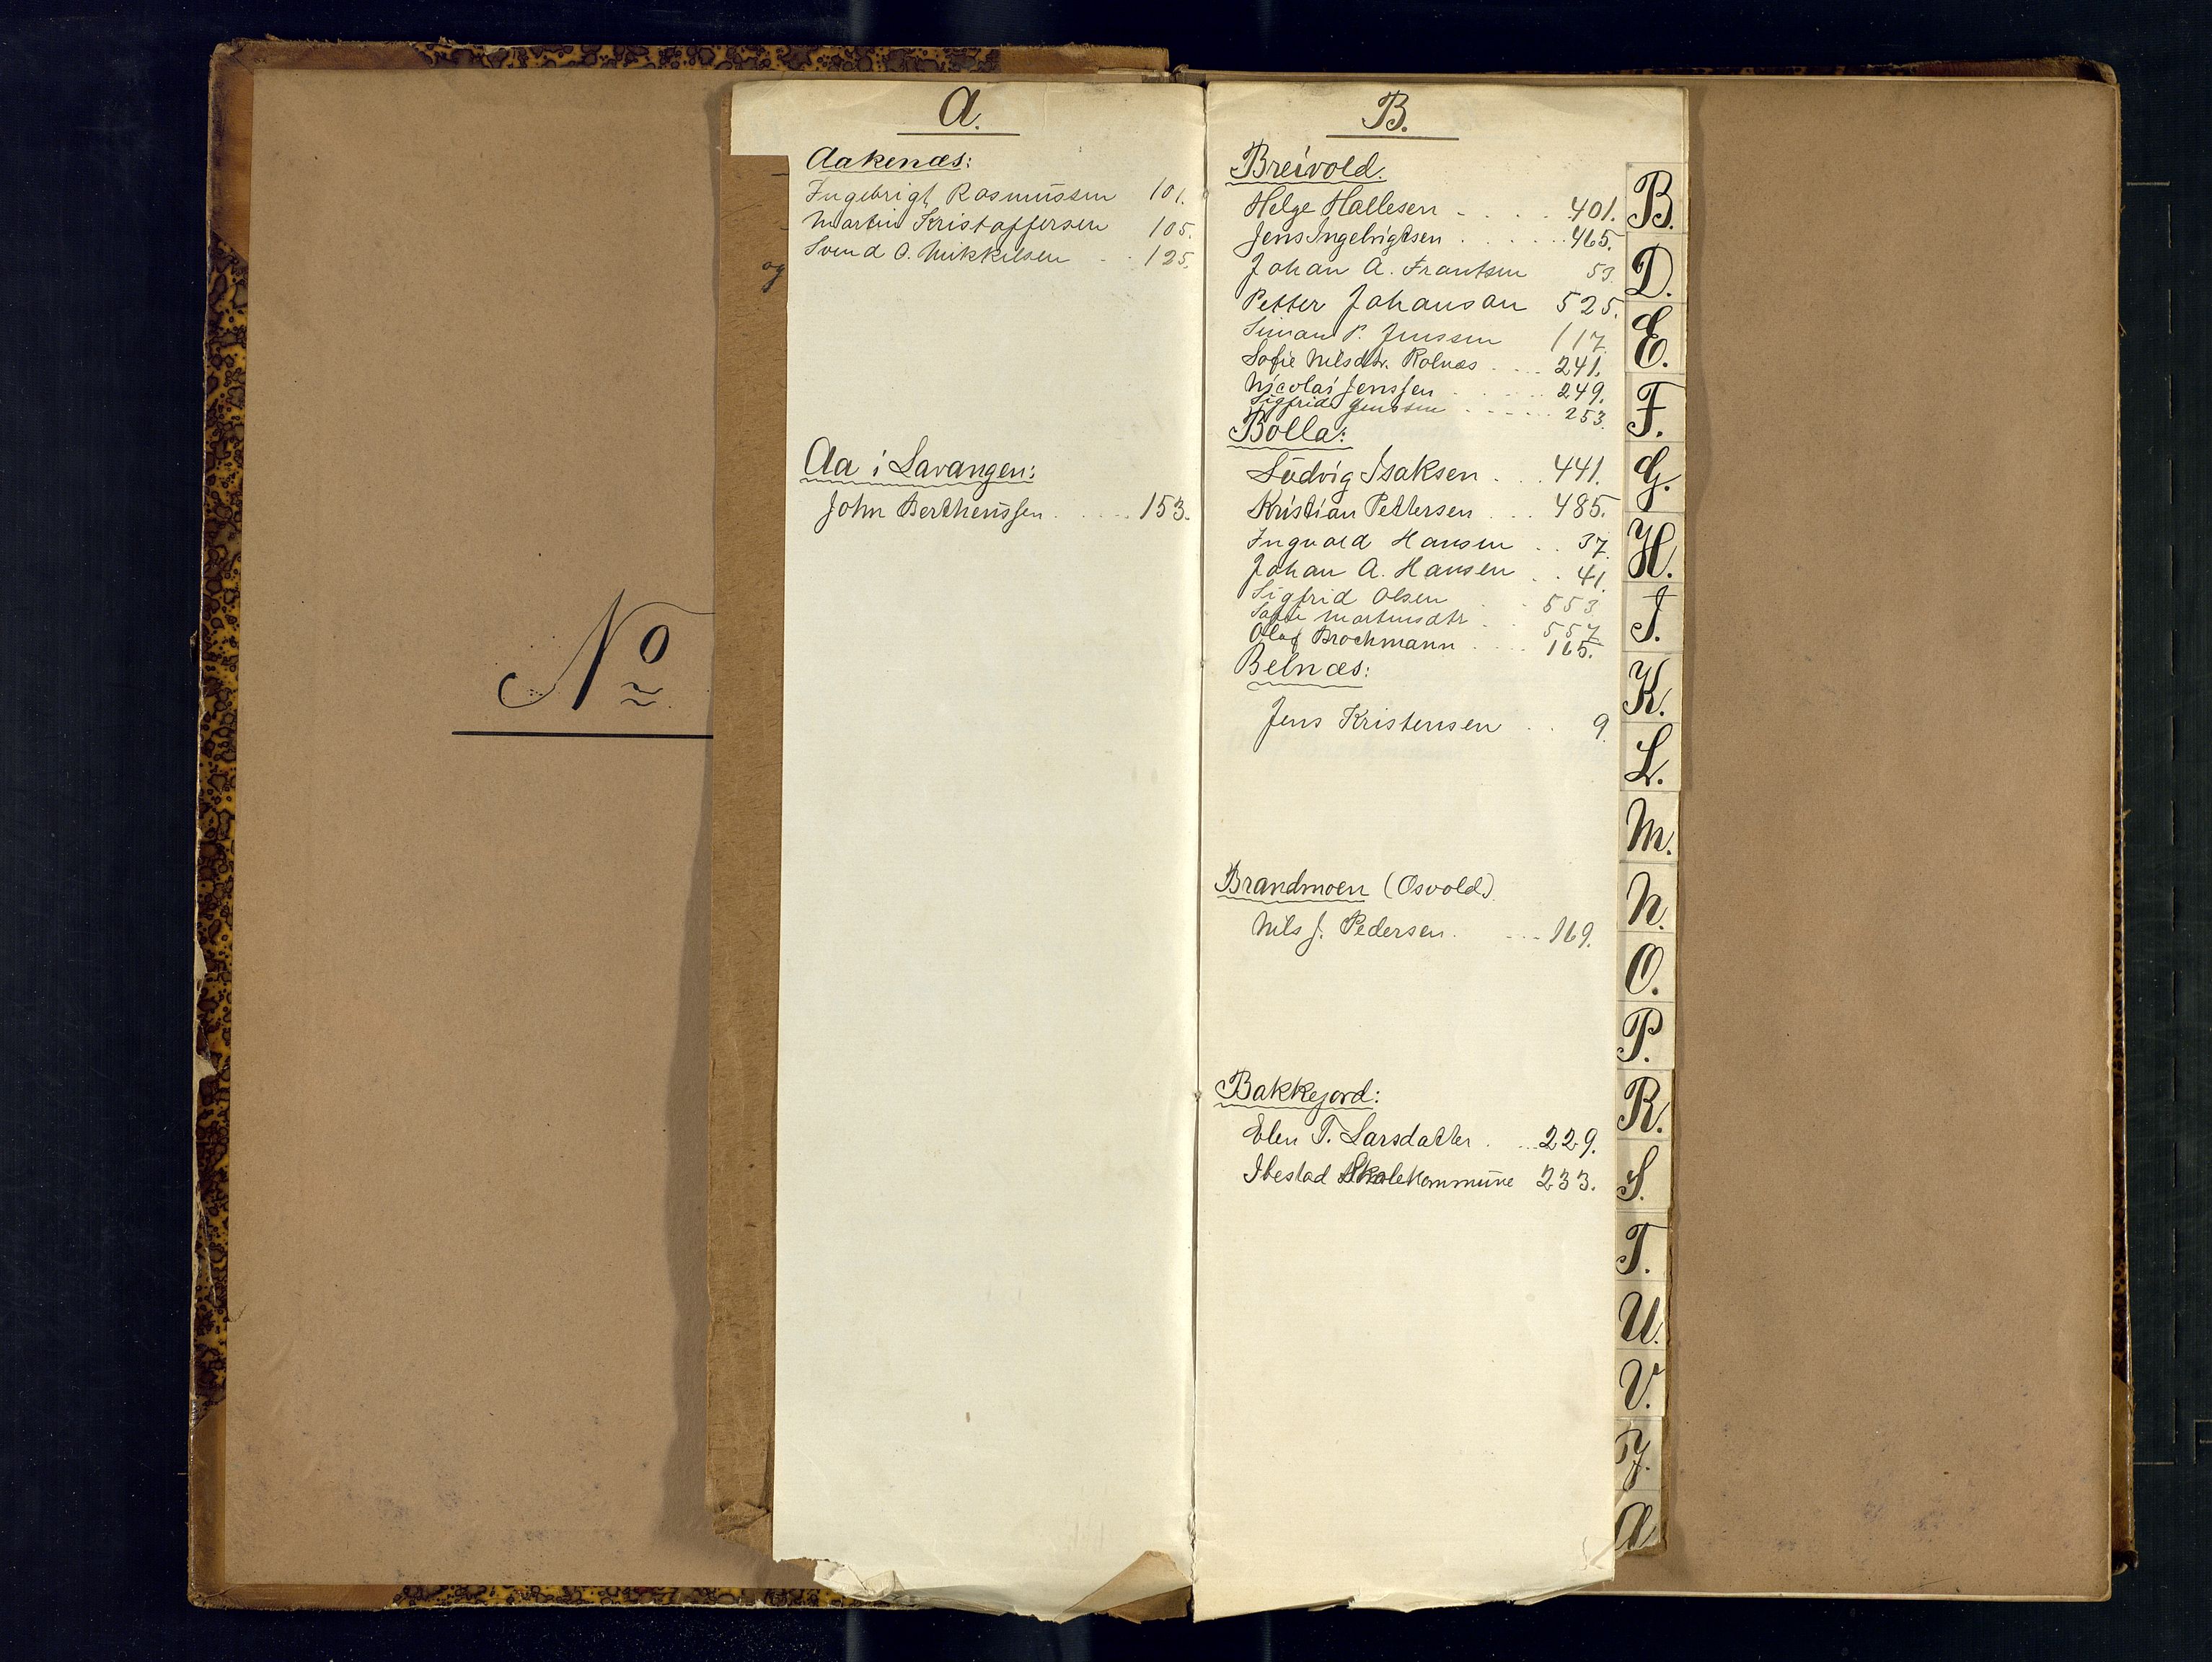 No
og
A.
Aakenæs:
Ingebrigt Rasmussen 101.
Martin Kristoffersen 105.
Svend O. Mikkelsen . . 125.
Aa i Lavangen:
John Bertheussen . . . . . 153.
B.
Breivold.
Helge Hallesen - . . . . 401.
Jens Ingebrigtsen . . . . . . . 465.
Johan A. Frantsen 53.
Petter Johanson 525.
Simon P. Jenssen 117.
Sofie Nilsdtr. Rolnæs . . . . 241.
Nicolai Jenssen . . . . . 249.
Sigfrid Jenssen . . . . . 253.
Bolla:
Ludvig Isaksen . . . 441.
Kristian Pettersen . . . 485.
Ingvald Hansen . . 37.
Johan A. Hansen . . 41.
Sigfrid Olsen . . 553.
Martinsdtr . . 557
Olaf Brochmann . . . . 165.
Belnæs:
Jens Kristensen . . 9.
Brandmoen (Osvold.)
Nils J. Pedersen. - - - 169.
Bakkejord:
Elen T. Larsdatter . . . . 229.
Ibestad Skolekommune 233.
B.
D.
E.
F.
G.
H.
J.
K.
L.
M.
N.
O.
P.
R.
S.
T.
U.
V.
A